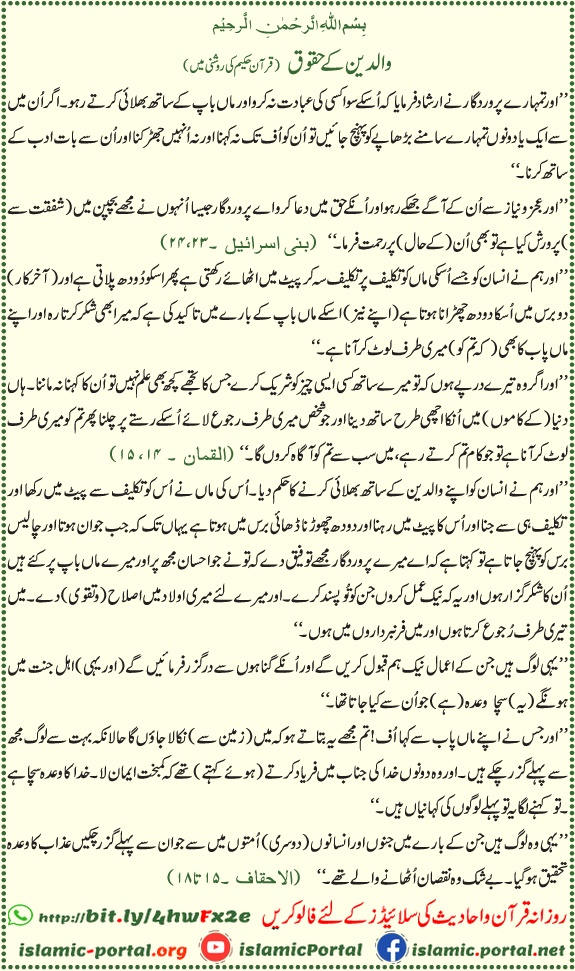 بِسْمِ اللهِ الرَّحْمٰنِ الرَّحِیْمِ
والدین کے حقوق (قرآن حکیم کی روشنی میں)
’’اور تمہارے پروردگار نے ارشاد فرمایا کہ اُسکے سوا کسی کی عبادت نہ کرو اور ماں باپ کے ساتھ بھلائی کرتے رہو۔ اگر اُن میں
سے ایک یا دونوں تمہارے سامنے بڑھاپے کو پہنچ جائیں تو اُن کو اُف تک نہ کہنا اور نہ اُنہیں جھڑکنا اور اُن سے بات ادب کے
ساتھ کرنا۔‘‘
’’اور عجز و نیاز سے اُن کے آگے جھکے رہو اور اُنکے حق میں دعا کرو اے پروردگار جیسا اُنہوں نے مجھے بچپن میں (شفقت سے
) پرورش کیا ہے تو بھی اُن (کے حال) پر رحمت فرما۔‘‘ (بنی اسرائیل ۔ ۲۳، ۲۴)
’’اور ہم نے انسان کو جسے اُسکی ماں کو تکلیف پر تکلیف سہ کر پیٹ میں اٹھائے رکھتی ہے پھر اسکو دُودھ پلاتی ہے اور (آخر کار)
دو برس میں اُسکا دودھ چھڑانا ہوتا ہے (اپنے نیز) اسکے ماں باپ کے بارے میں تاکید کی ہے کہ میرا بھی شکر کرتا رہ اور اپنے
ماں باپ کا بھی (کہ تم کو) میری طرف لوٹ کر آنا ہے۔‘‘
’’اور اگر وہ تیرے درپے ہوں کہ تو میرے ساتھ کسی ایسی چیز کو شریک کرے جس کا تجھے کچھ بھی علم نہیں تو اُن کا کہنا نہ ماننا۔ ہاں
دنیا (کے کاموں) میں اُنکا اچھی طرح ساتھ دینا اور جو شخص میری طرف رجوع لائے اُسکے رستے پر چلنا پھر تم کو میری طرف
لوٹ کر آنا ہے تو جو کام تم کرتے رہے، میں سب سے تم کو آگاہ کروں گا۔‘‘ (القمان ۔ ۱۴، ۱۵)
’’اور ہم نے انسان کو اپنے والدین کے ساتھ بھلائی کرنے کا حکم دیا۔ اُس کی ماں نے اُس کو تکلیف سے پیٹ میں رکھا اور
تکلیف ہی سے جنا اور اُس کا پیٹ میں رہنا اور دودھ چھوڑنا ڈھائی برس میں ہوتا ہے یہاں تک کہ جب جوان ہوتا اور چالیس
برس کو پہنچ جاتا ہے تو کہتا ہے کہ اے میرے پروردگار مجھے توفیق دے کہ تو نے جو احسان مجھ پر اور میرے ماں باپ پر کئے ہیں
اُن کا شکر گزار ہوں اور یہ کہ نیک عمل کروں جن کو تُو پسند کرے۔ اور میرے لئے میری اولاد میں اصلاح (و تقوی) دے۔ میں
تیری طرف رُجوع کرتا ہوں اور میں فرنبرداروں میں ہوں۔‘‘
’’یہی لوگ ہیں جن کے اعمال نیک ہم قبول کریں گے اور اُنکے گناہوں سے درگزر فرمائیں گے (اور یہی) اہل جنت میں
ہونگے (یہ) سچا وعدہ (ہے) جو اُن سے کیا جاتا تھا۔‘‘
’’اور جس نے اپنے ماں باپ سے کہا اُف! تم مجھے یہ بتاتے ہو کہ میں (زمین سے) نکالا جاؤں گا حالانکہ بہت سے لوگ مجھ
سے پہلے گزر چکے ہیں۔ اور وہ دونوں خدا کی جناب میں فریاد کرتے (ہوئے کہتے) تھے کہ کمبخت ایمان لا۔ خدا کا وعدہ سچا ہے
۔ تو کہنے لگا یہ تو پہلے لوگوں کی کہانیاں ہیں۔‘‘
’’یہی وہ لوگ ہیں جن کے بارے میں جنوں اور انسانوں (دوسری) اُمتوں میں سے جو ان سے پہلے گزر چکیں عذاب کا وعدہ
تحقیق ہو گیا۔ بے شک وہ نقصان اُٹھانے والے تھے۔‘‘ (الاحقاف ۔ ۱۵ تا ۱۸)
روزانہ قرآن و احادیث کی سلائیڈز کے لئے فالو کریں http://bit.ly/4hwFx2e
islamic-portal.org islamicPortal islamic-portal.net